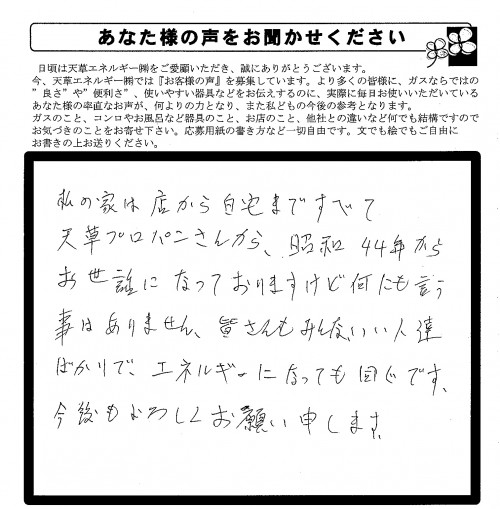 あなた様の声をお聞かせください
日頃は天草エネルギー㈱をご愛顧いただき、誠にありがとうございます。
今、天草エネルギー㈱では『お客様の声』を募集しています。より多くの皆様に、ガスならではの
”良さ”や”便利さ”、使いやすい器具などをお伝えするのに、実際に毎日お使いいただいている
あなた様の率直なお声が、何よりの力となり、また私どもの今後の参考となります。
ガスのこと、コンロやお風呂など器具のこと、お店のこと、他社との違いなど何でも結構ですので
お気づきのことをお寄せ下さい。応募用紙の書き方など一切自由です。文でも絵でもご自由に
お書きの上お送りください。
私の家は店から自宅まですべて
天草プロパンさんから、昭和44年から
お世話になっておりますけど何にも言う
事はありません、皆さんもみんないい人達
ばかりで、エネルギーになっても同じです、
今後もよろしくお願い申します。